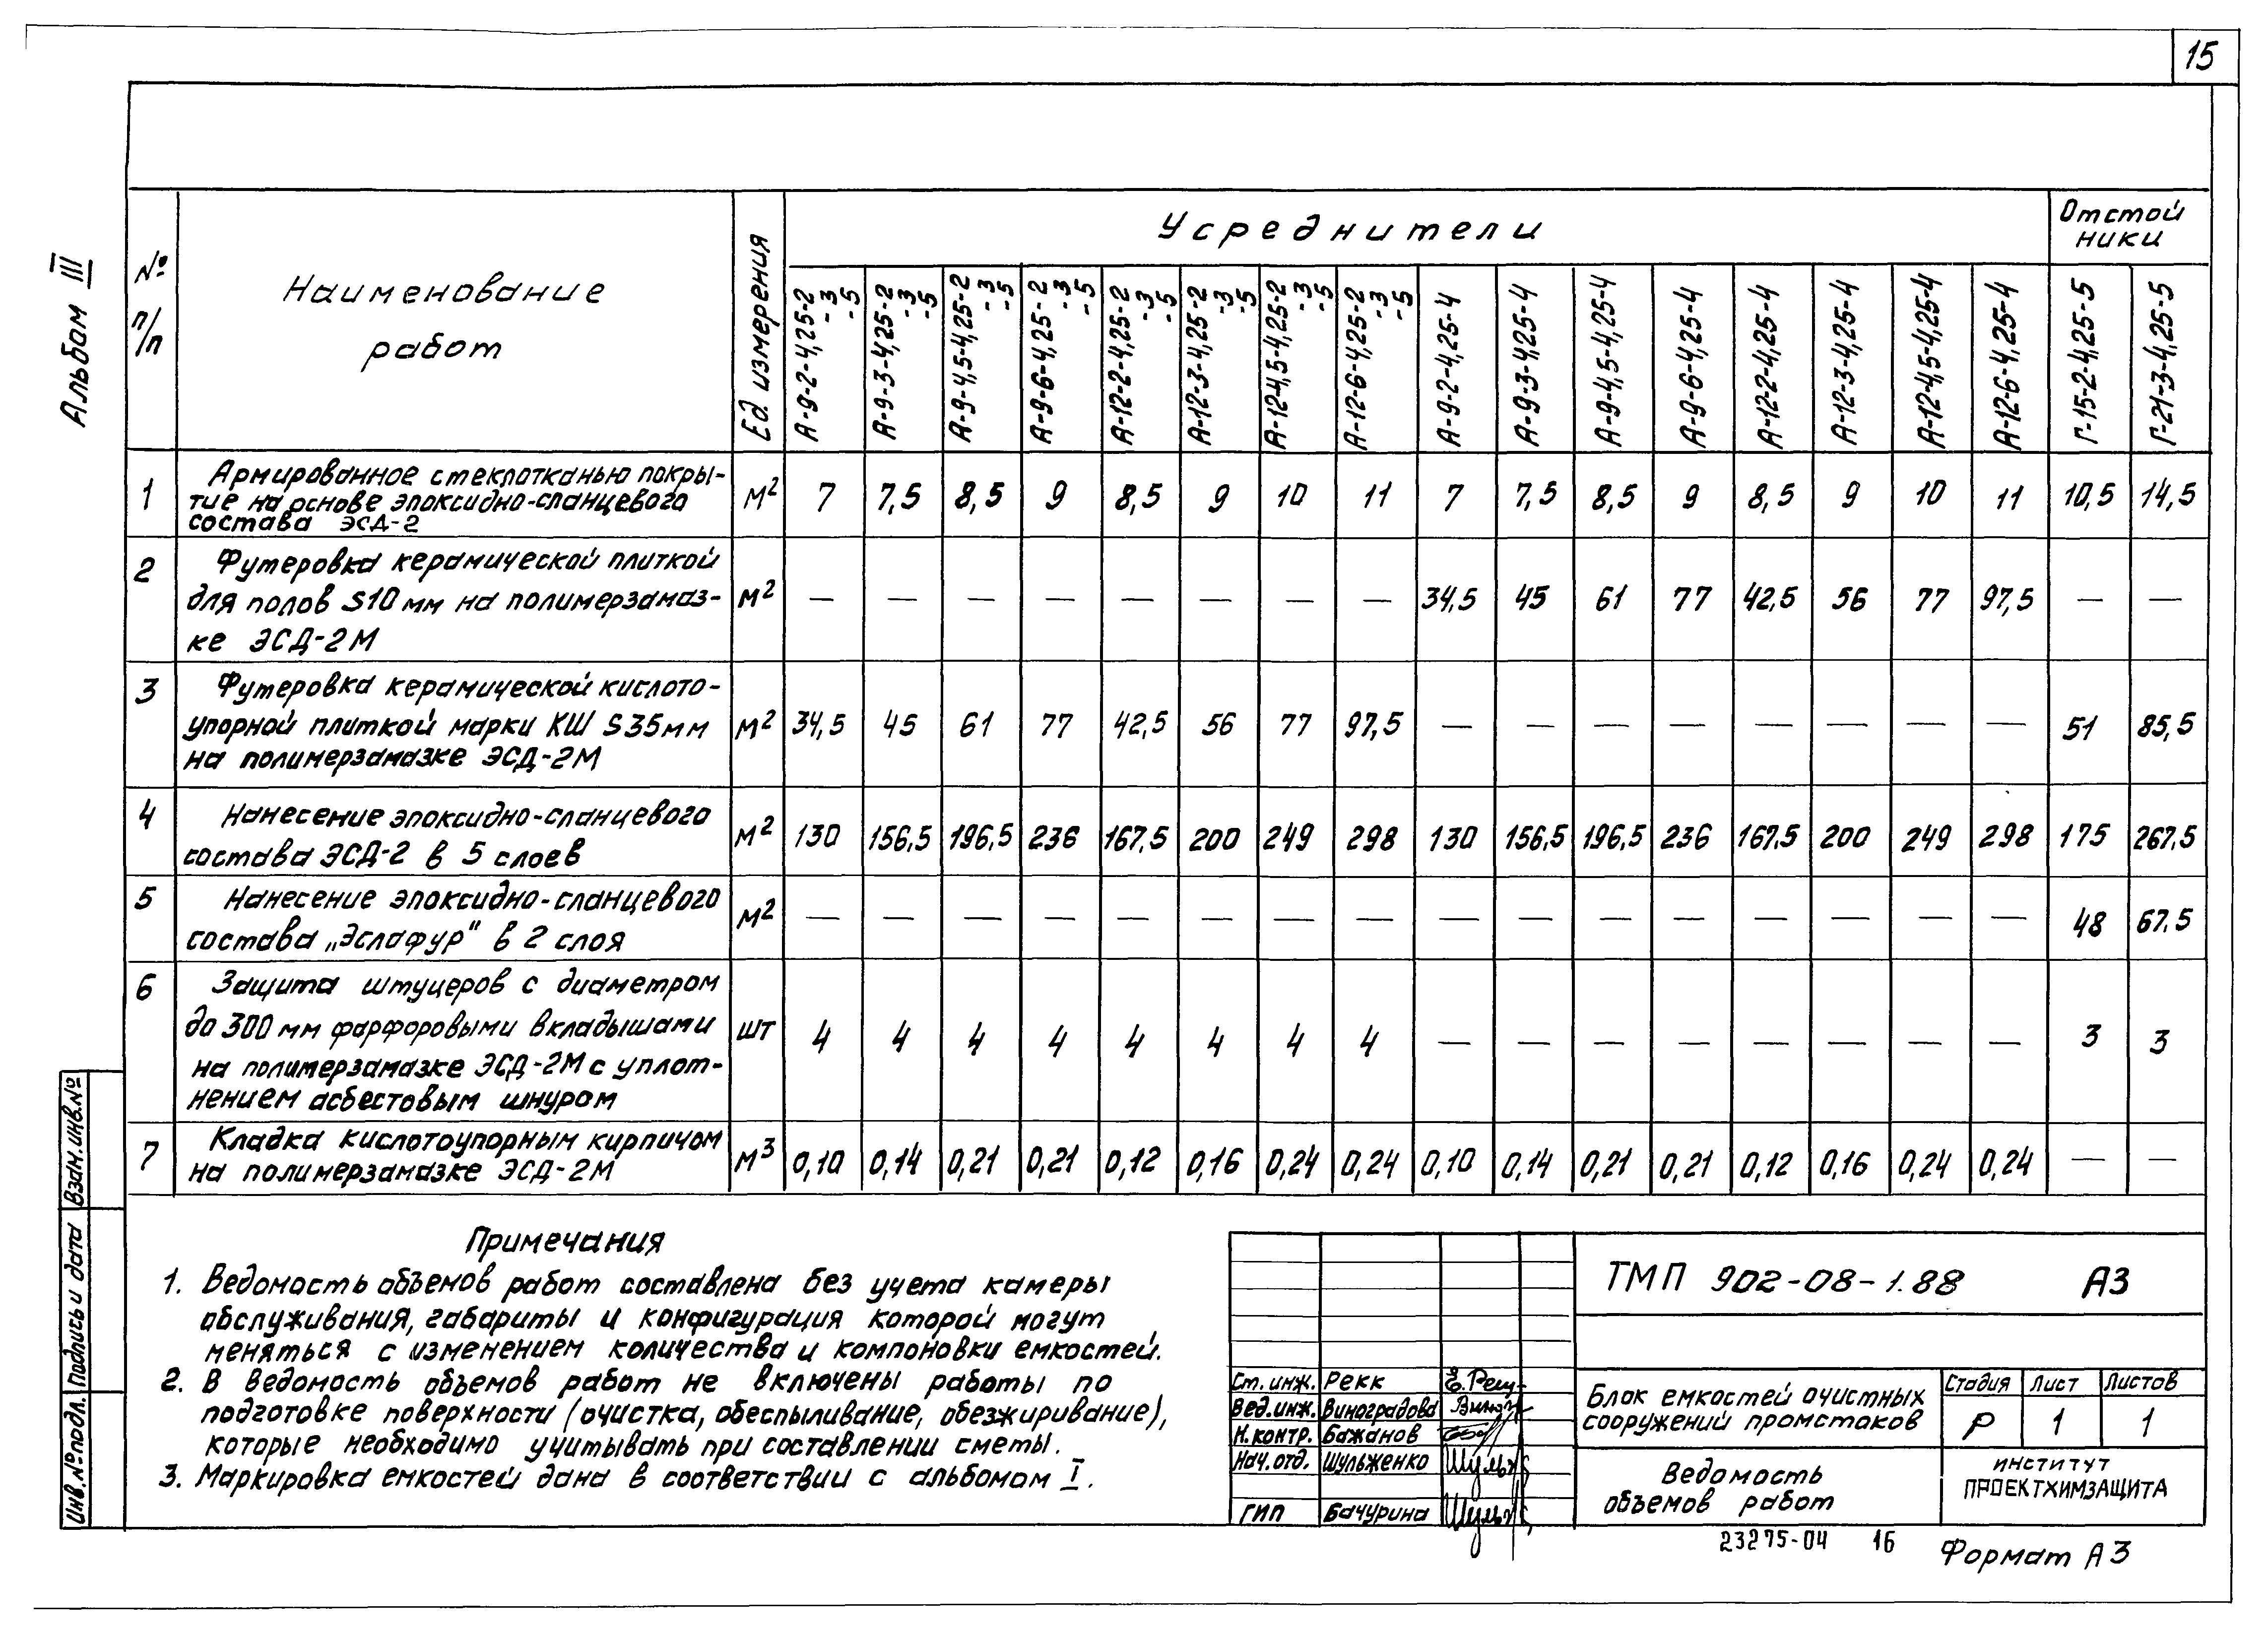 15
Альбом III
№ п/п
Наименование работ
Ед. измерения
Усреднители
Отстойники
А-9-2-4,25-2 -3 -5
А-9-3-4,25-2 -3 -5
А-9-4,5-4,25-2 -3 -5
А-9-6-4,25-2 -3 -5
А-12-2-4,25-2 -3 -5
А-12-3-4,25-2 -3 -5
А-12-4,5-4,25-2 -3 -5
А-12-6-4,25-2 -3 -5
А-9-2-4,25-4
А-9-3-4,25-4
А-9-4,5-4,25-4
А-9-6-4,25-4
А-12-2-4,25-4
А-12-3-4,25-4
А-12-4,5-4,25-4
А-12-6-4,25-4
Г-15-2-4,25-5
Г-21-3-4,25-5
1 Армированное стеклотканью покры-
тие на основе эпоксидно-сланцевого
состава ЭСД-2
м² 7 7,5 8,5 9 8,5 9 10 11 7 7,5 8,5 9 8,5 9 10 11 10,5 14,5
2 Футеровка керамической плиткой
для полов S10 мм на полимерзамаз-
ке ЭСД-2М
м² — — — — — — — — 34,5 45 61 77 42,5 56 77 97,5 — —
3 Футеровка керамической кислото-
упорной плиткой марки КШ S35мм
на полимерзамазке ЭСД-2М
м² 34,5 45 61 77 42,5 56 77 97,5 — — — — — — — — 51 85,5
4 Нанесение эпоксидно-сланцевого
состава ЭСД-2 в 5 слоев
м² 130 156,5 196,5 236 167,5 200 249 298 130 156,5 196,5 236 167,5 200 249 298 175 267,5
5 Нанесение эпоксидно-сланцевого
состава „Эслафур" в 2 слоя
м² — — — — — — — — — — — — — — — — 48 67,5
6 Защита штуцеров с диаметром
до 300 мм фарфоровыми вкладышами
на полимерзамазке ЭСД-2М с уплот-
нением асбестовым шнуром
шт 4 4 4 4 4 4 4 4 — — — — — — — — 3 3
7 Кладка кислотоупорным кирпичом
на полимерзамазке ЭСД-2М
м³ 0,10 0,14 0,21 0,21 0,12 0,16 0,24 0,24 0,10 0,14 0,21 0,21 0,12 0,16 0,24 0,24 — —
Примечания
1. Ведомость объемов работ составлена без учета камеры
обслуживания, габариты и конфигурация которой могут
меняться с изменением количества и компоновки емкостей.
2. В ведомость объемов работ не включены работы по
подготовке поверхности (очистка, обеспыливание, обезжиривание),
которые необходимо учитывать при составлении сметы.
3. Маркировка емкостей дана в соответствии с альбомом I.
Взам. инв. №
Подпись и дата
Инв. № подл.
ТМП 902-08-1.88 А3
Ст. инж. Рекк
Вед. инж. Виноградова
Н. контр. Бажанов
Нач. отд. Шульженко
ГИП Бачурина
Блок емкостей очистных
сооружений промстоков
Стадия Лист Листов
Р 1 1
Ведомость
объемов работ
ИНСТИТУТ
ПРОЕКТХИМЗАЩИТА
23275-04 16
Формат А3